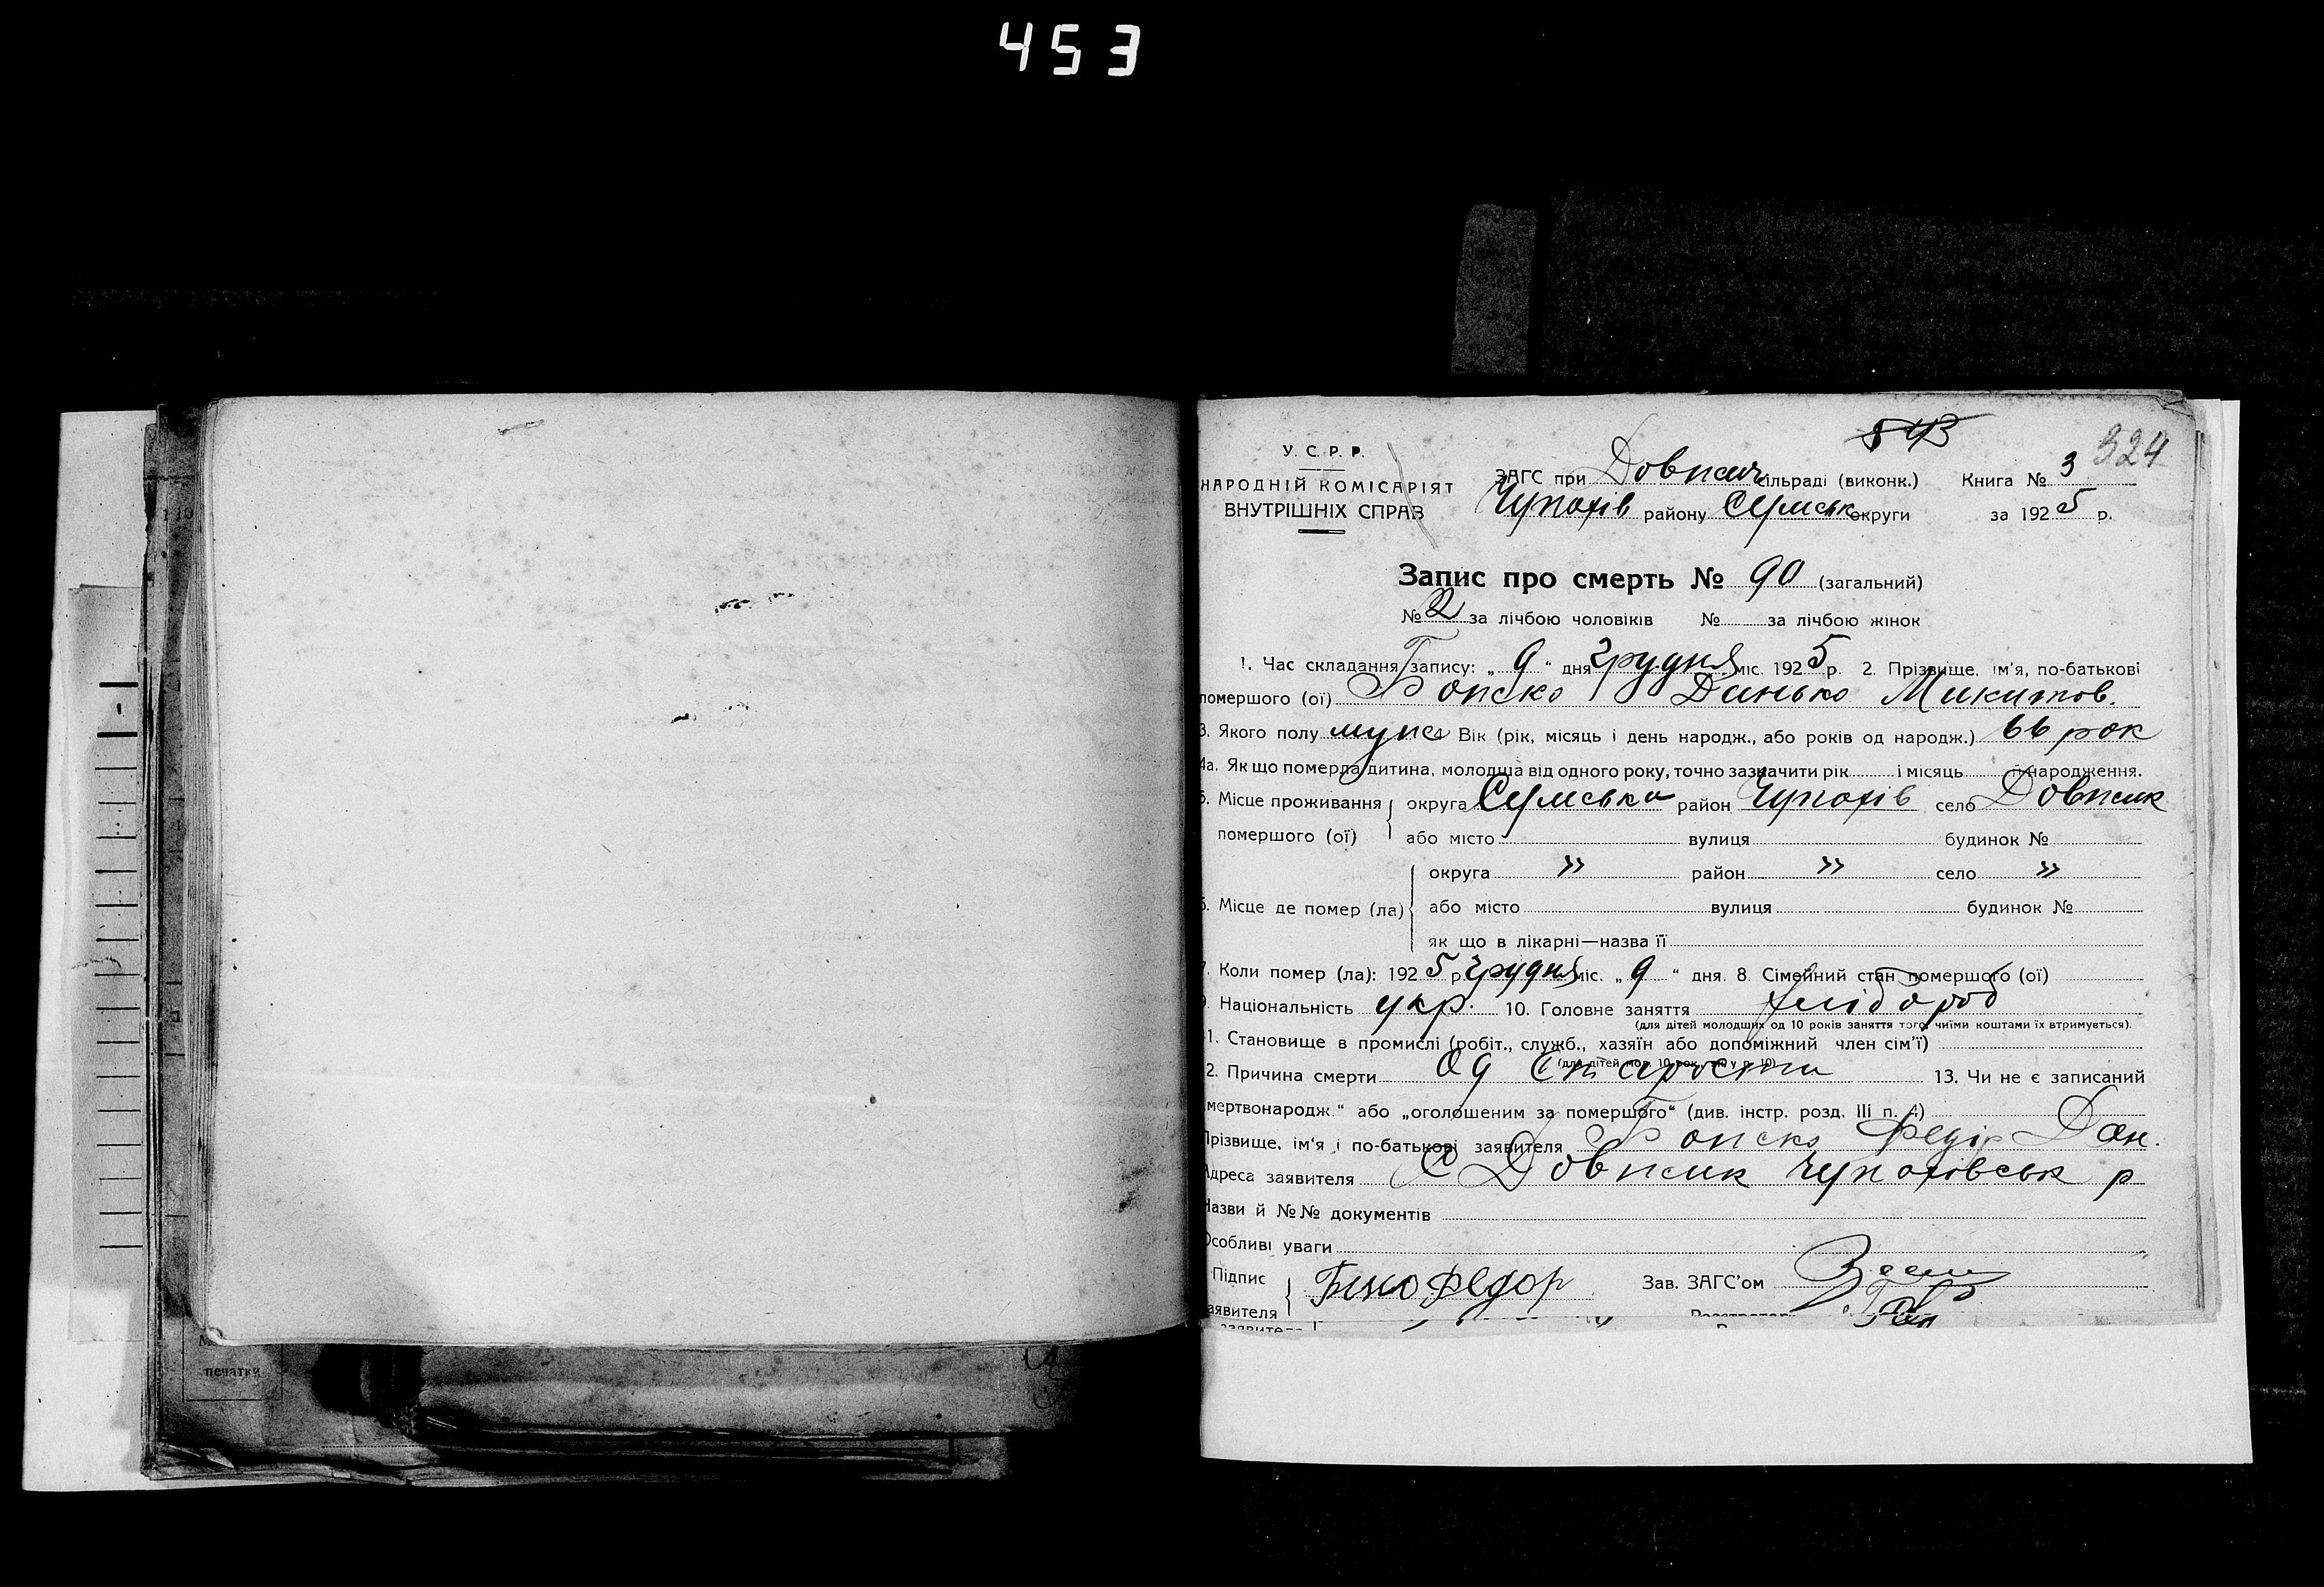 453
543
324
У. С. Р. Р.
НАРОДНІЙ КОМІСАРІЯТ
ВНУТРІШНІХ СПРАВ
ЗАГС при Довпсич сільраді (виконк.) Книга № 3
Чупахів району Сумськ округи за 1925 р.
Запис про смерть № 90 (загальний)
№ 2 за лічбою чоловіків № за лічбою жінок
1. Час складання запису: „ 9 “ дня грудня міс. 1925 р. 2. Прізвище, ім'я, по-батькові
помершого (ої) Данько Микитов.
3. Якого полу Вік (рік, місяць і день народж., або років од народж.) 66 рок
4а. Як що померла дитина, молодша від одного року, точно зазначити рік і місяць її народження.
5. Місце проживання округа Сумська район Чупахів село Довпсик
помершого (ої) або місто вулиця будинок №
округа " район " село "
6. Місце де помер (ла) або місто вулиця будинок №
як що в лікарні—назва її
7. Коли помер (ла): 1925 р. грудня міс. „ 9 “ дня. 8. Сімейний стан помершого (ої)
9. Національність укр. 10. Головне заняття хлібороб
(для дітей молодших од 10 років заняття того, чиїми коштами їх втримується).
11. Становище в промислі (робіт., служб., хазяїн або допоміжний член сім'ї)
12. Причина смерти Од Старости 13. Чи не є записаний
„мертвонародж.“ або „оголошеним за помершого“ (див. інстр. розд. III п. 4)
Прізвище, ім'я і по-батькові заявителя Федір Дан.
Адреса заявителя С Довпсик Чупахівськ р
Назви й №№ документів
Особливі уваги
Підпис
заявителя Федор Зав. ЗАГС'ом
заявителя
печатки